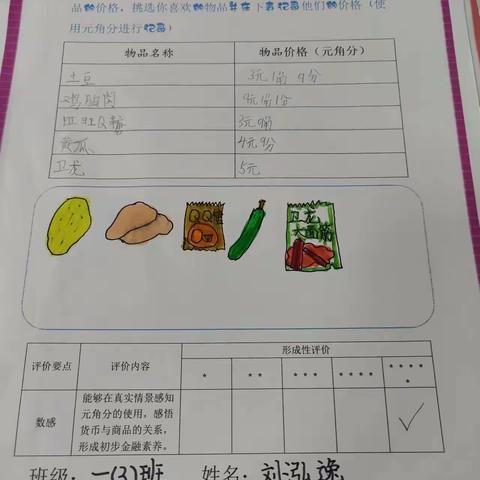 品的价格，挑选你喜欢的物品并在下表记录他们的价格（使
用元角分进行记录）
物品名称 物品价格（元角分）
土豆 3元1角9分
鸡胸肉
旺旺QQ糖 3元9角
黄瓜 4元9分
卫龙 5元
QQ糖
卫龙
大面筋
形成性评价
评价要点 评价内容 * ** *** **** *****
数感 能够在真实情景感知
元角分的使用，感悟
货币与商品的关系，
形成初步金融素养。 ✓
班级：一(3)班 姓名：刘泓逸